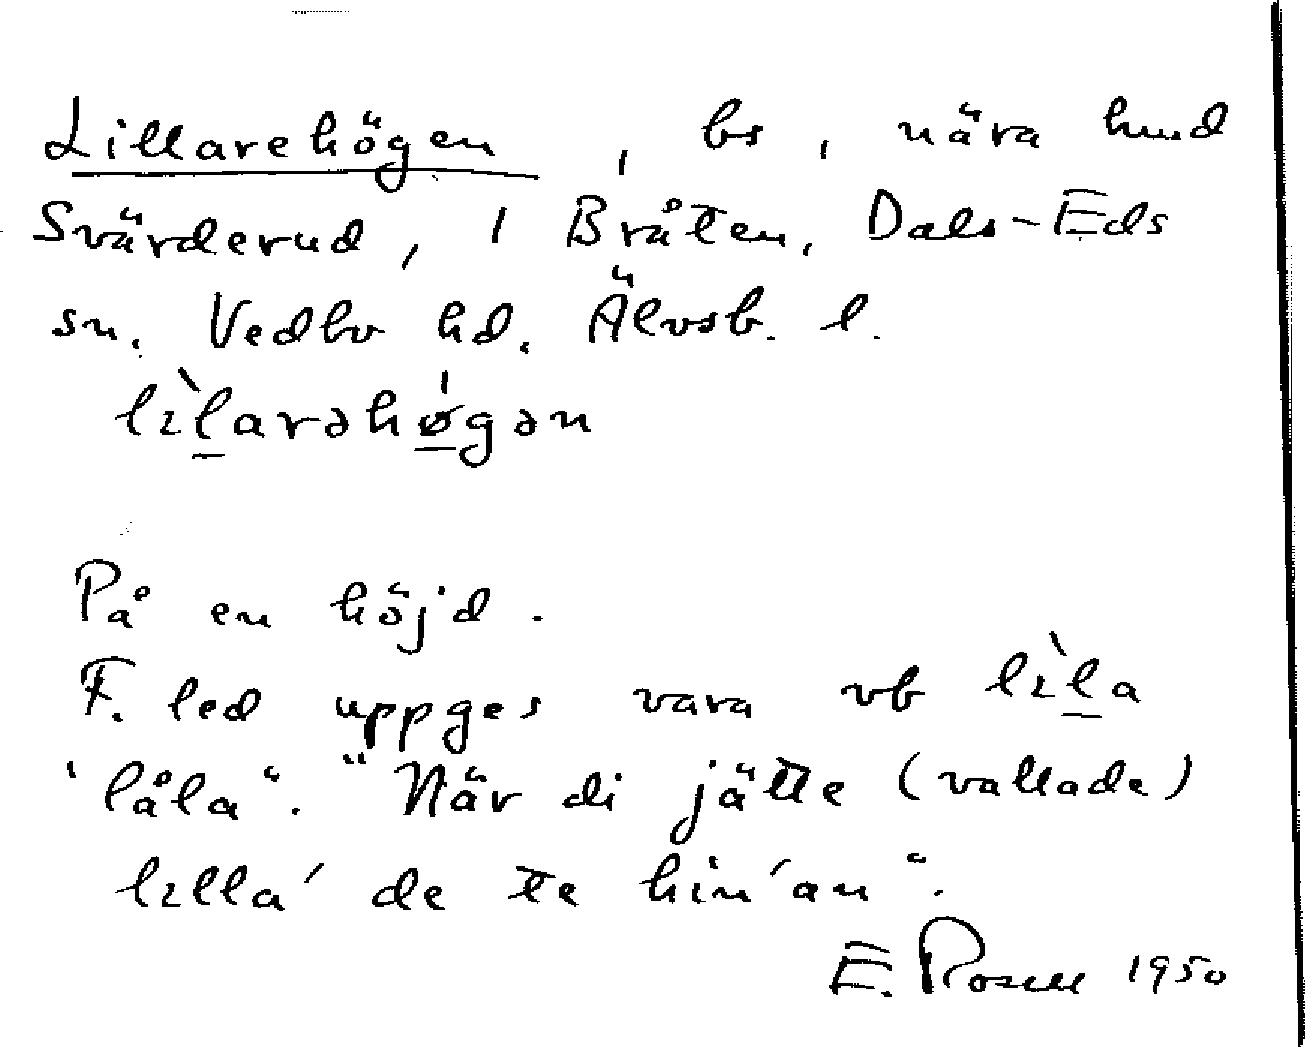 Lillarehögen, bs, nära hmd
Svärderud, 1 Bråten, Dals-Eds
sn. Vedbo hd. Älvsb. l.
lɪ̀larəhǿgən
På en höjd.
F. led uppges vara vb lɪ̀la
"låla". "När di jätte (vallade)
lɪlla' de te hin'an".
E. Rosell 1950